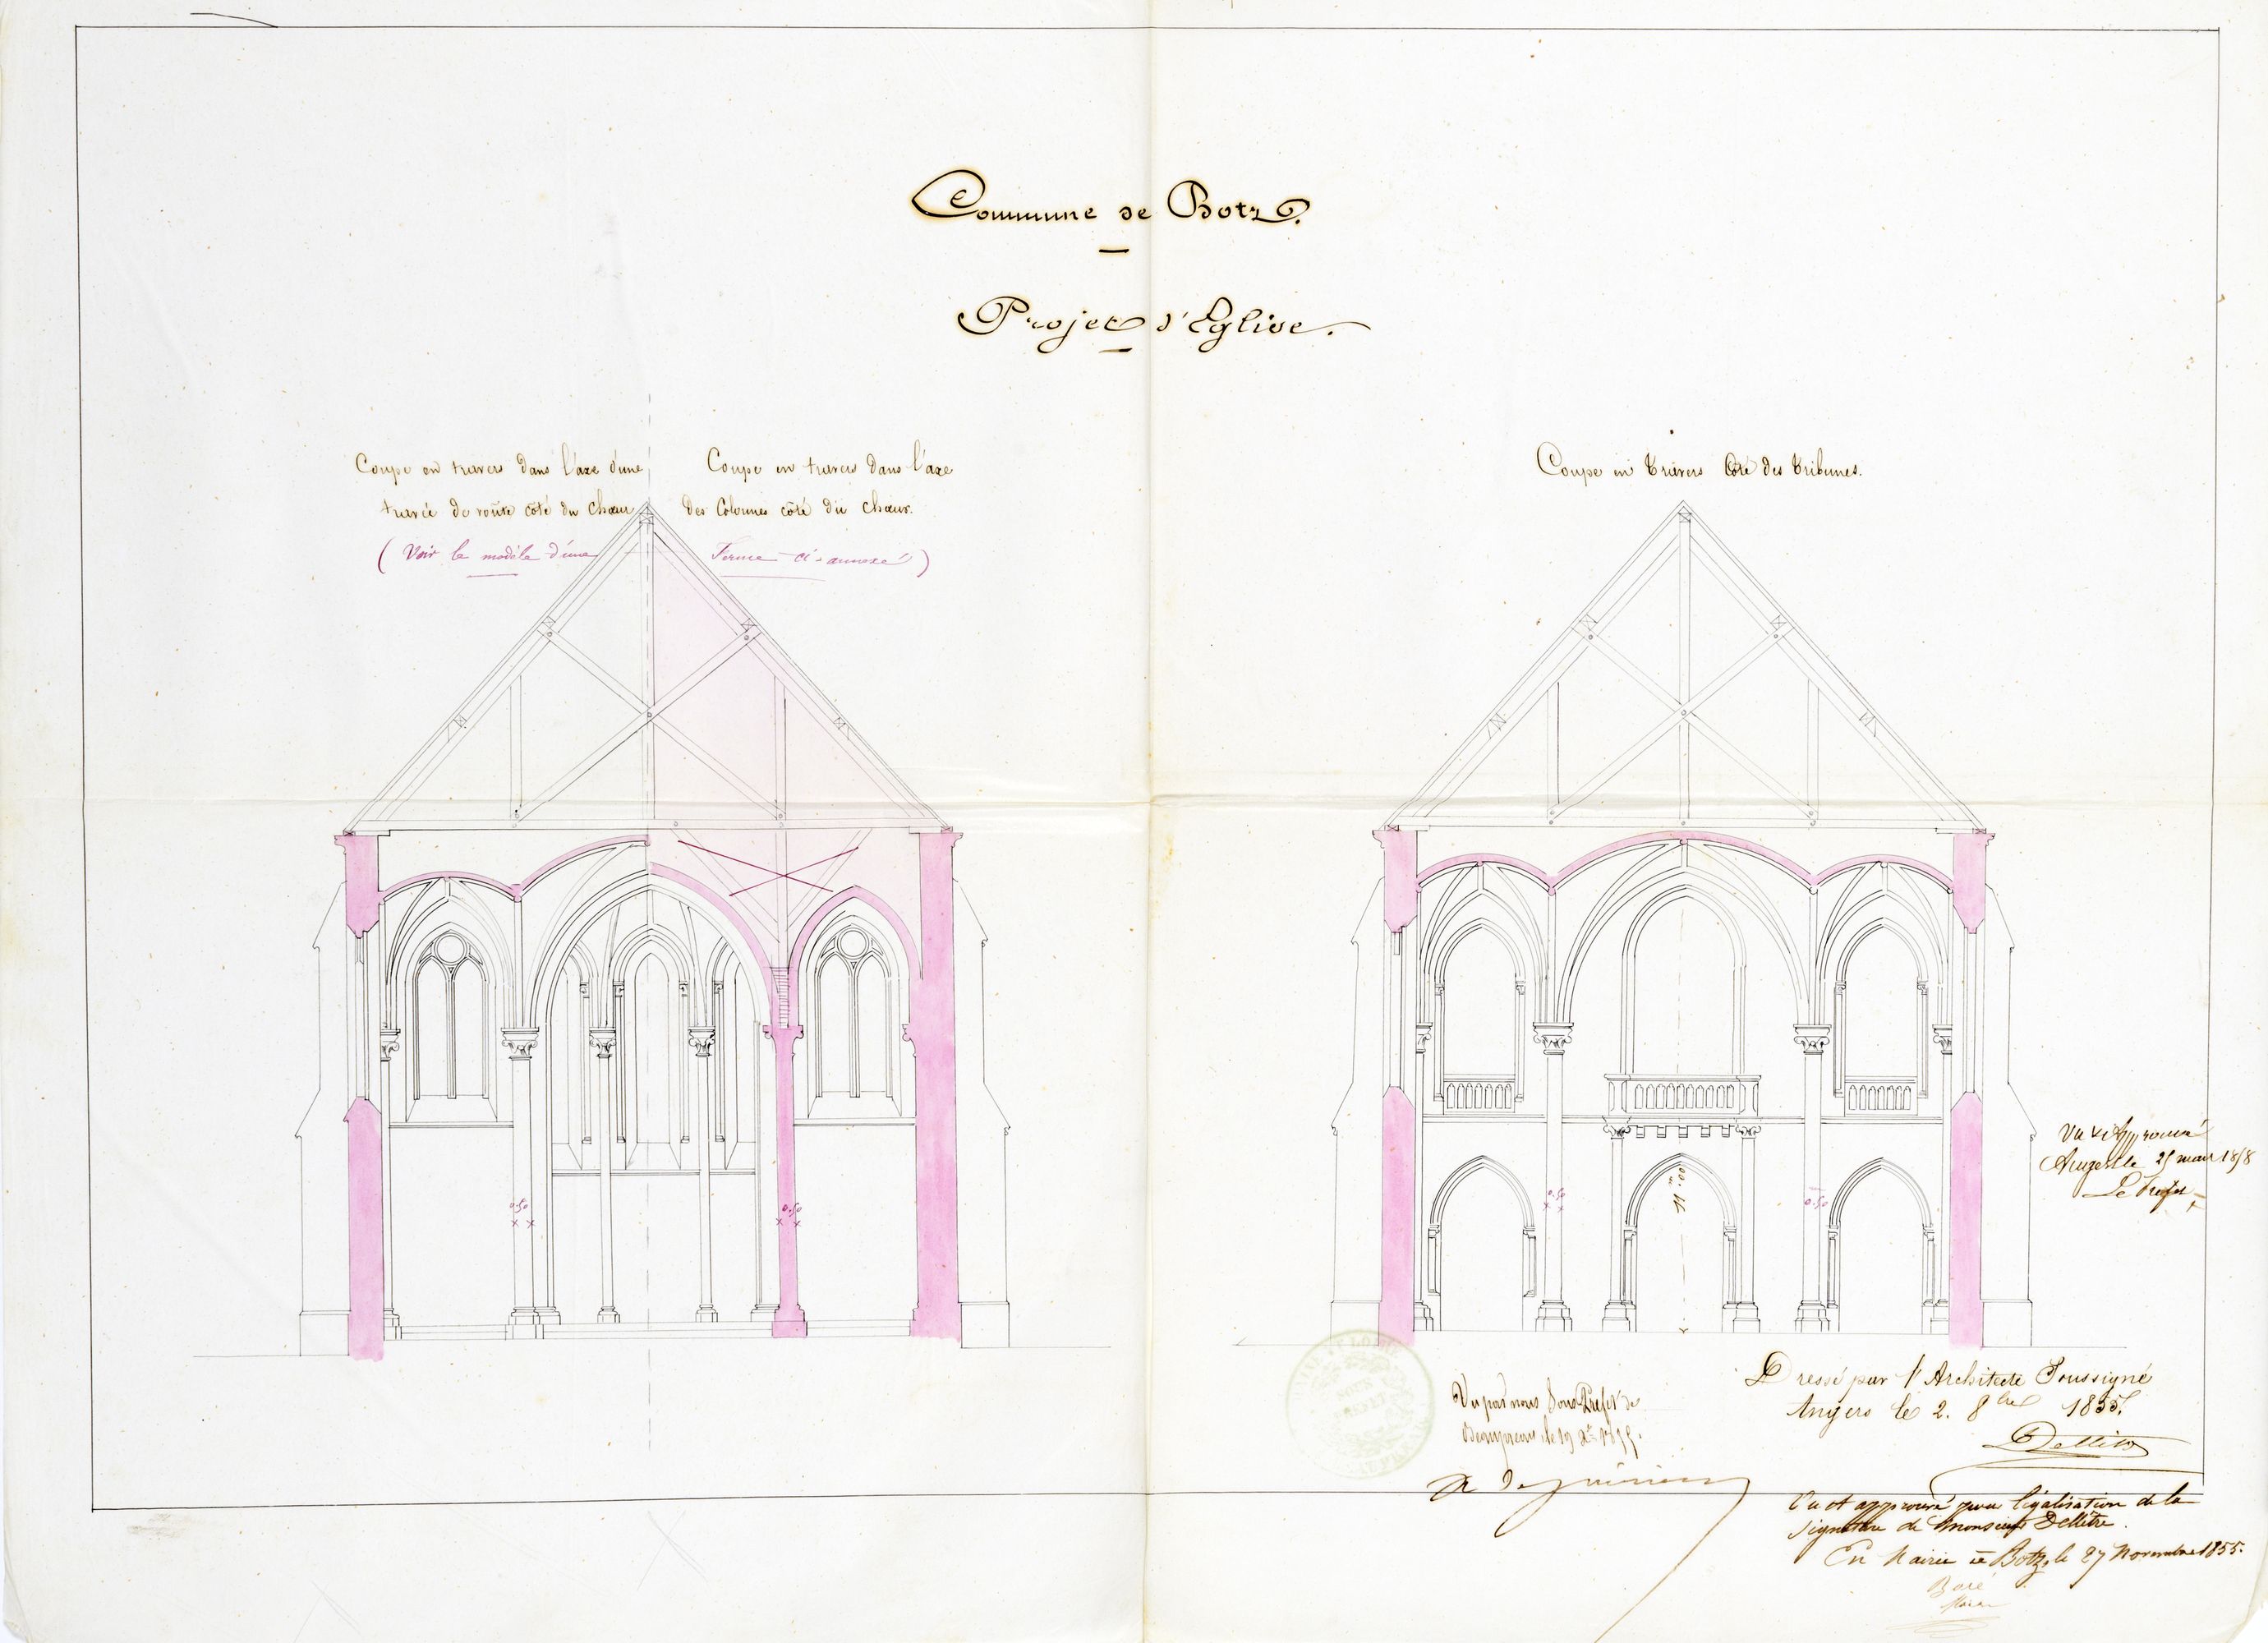 Commune de Botz.
Projet d'Eglise.
Coupe en travers dans l'axe d'une
travée de voûte côté du Chœur
Coupe en travers dans l'axe
des Colonnes côté du chœur.
( Voir le modèle d'une Ferme ci-annexé )
Coupe en travers côté des tribunes.
0.50
0.50
0.50
11m.00
0.50
Vu & Approuvé
Angers le 25 mars 1858
Le Préfet
Vu par nous Sous Préfet de
Beaupreau, le 19 Xbre 1855.
Dressé par l'Architecte Soussigné
Angers le 2. 8bre 1855.
Dellêtre
Vu et approuvé pour légalisation de la
signature de monsieur Dellêtre.
En Mairie à Botz, le 27 Novembre 1855.